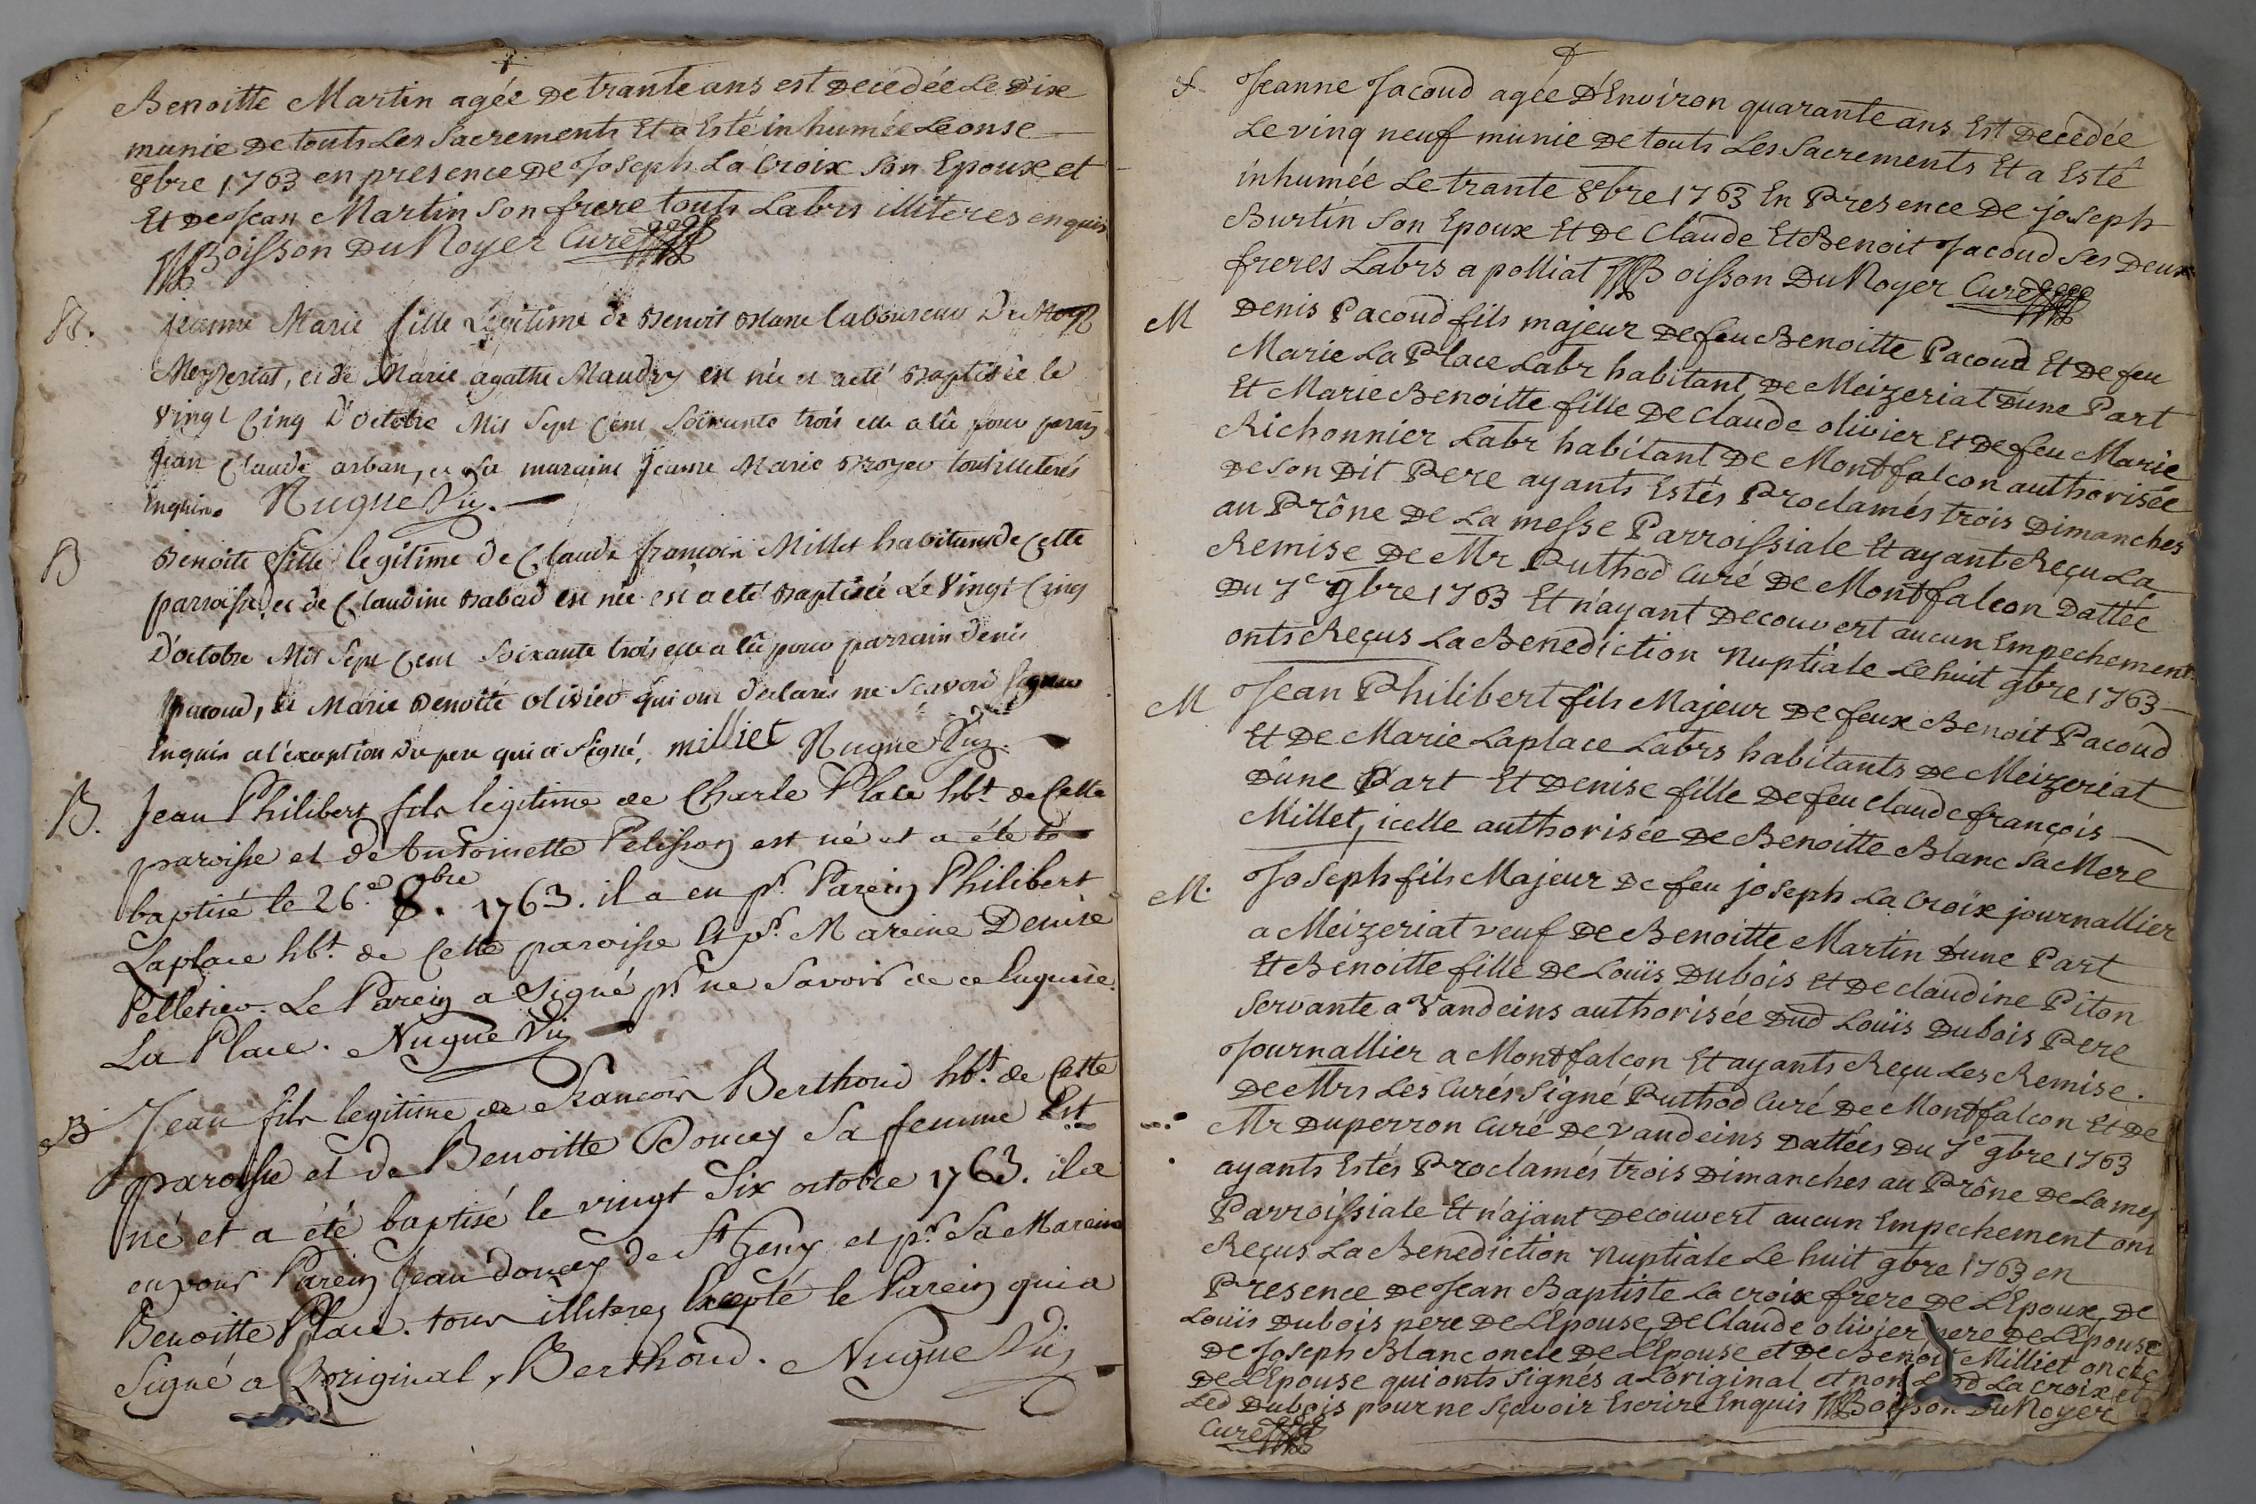 +
Benoitte Martin agée De trante ans est Decedée Le Dixe
munie De touts Les Sacrements Et a Esté inhumée Le onse
8bre 1763 en presence De Joseph La Croix Son Epoux et
Et De Jean Martin Son frere touts Labrs illiteres enquis
Boisson DuNoyer Curé
B.
jeanne Marie fille Légitime de Benoit Blanc laboureur
Meyzeriat, et de Marie agathe Maudry est née et a eté Baptisée le
Vingt Cinq D'octobre Mil Sept Cent Soixante trois elle a eû pour parain
Jean Claude arban, et La maraine Jeanne Marie Broyer tout illiterés
Enquis. Nugue Vic.
B
Benoite fille legitime de Claude françois Millet habitant de Cette
parroisse, et de Claudine Babad est née est a eté Baptisée Le Vingt Cinq
D'octobre Mil Sept Cent Soixante trois elle a eû pour parrain denis
pacoud, et Marie Benoite olivier qui ont declarés ne Scavoir Signer
Enquis a l'exception du pere qui a Signé. milliet Nugue Vic.
B.
Jean Philibert fils legitime de Charle Place hbt. de Cette
paroisse et de Antoinette Pelisson est né et a été
baptisé le 26e. 8.bre 1763. il a eu pr. Parein Philibert
Laplace hbt. de Cette paroisse Et pr. Mareine Denise
Pelletier. Le Parein a Signé pr. ne Savoir de ce Enquise.
La Place. Nugue Vic
B
Jean fils legitime de Francois Berthoud hbt. de Cette
paroisse et de Benoitte Doucey Sa femme Est
né et a été baptisé le vingt Six octobre 1763. il a
eu pour Parein Jean doucey de St Geny et pr. Sa Mareine
Benoitte Place. tous illiterez Excepté le Parein qui a
Signé a L'original, Berthoud. Nugue Vic
+
Jeanne Jacoud agée D'Environ quarante ans Est Decedée
Le vinq neuf munie De touts Les Sacrements Et a Esté
inhumée Le trante 8bre 1763 En Presence De joseph
Burtin Son Epoux Et De Claude Et Benoit Jacoud Ses Deux
freres Labrs a polliat Boisson DuNoyer Curé
M
Denis Pacoud fils majeur De feu Benoitte Pacoud Et De feu
Marie La Place Labr habitant De Meizeriat D'une Part
Et Marie Benoitte fille De Claude olivier Et De feu Marie
Richonnier Labr habitant De Montfalcon authorisée
De Son Dit Pere ayants Estés Proclamés trois Dimanches
au Prône De La messe Parroissiale Et ayant Reçu La
Remise De Mr Puthod Curé De Montfalcon Dattée
Du 7e 9bre 1763 Et n'ayant Decouvert aucun Empechement
onts Reçus La Benediction Nuptiale Le huit 9bre 1763
M
Jean Philibert fils Majeur De feux Benoit Pacoud
Et De Marie Laplace Labrs habitants De Meizeriat
D'une Part Et Denise fille De feu Claude françois
Millet, icelle authorisée De Benoitte Blanc Sa Mere
M.
Joseph fils Majeur De feu joseph La Croix journallier
a Meizeriat veuf De Benoitte Martin D'une Part
Et Benoitte fille De Louïs Dubois Et De Claudine Piton
Servante a Vandeins authorisée Dud Louïs Dubois Pere
Journallier a Montfalcon Et ayants Reçu Les Remise.
De Mrs Les Curés Signé Puthod Curé De Montfalcon Et De
Mr Duperron Curé De Vandeins Dattées Du 7e 9bre 1763
ayants Estés Proclamés trois Dimanches au Prône De La mes
Parroissiale Et n'ajant Decouvert aucun Empechement ont
Reçus La Benediction Nuptiale Le huit 9bre 1763 en
Presence De Jean Baptiste La croix frere De L'Epoux, De
Louïs Dubois pere De L'Epouse, De Claude olivier pere De L'Epouse
De Joseph Blanc oncle De L'Epouse et De Benoit Milliet oncle
De L'Epouse qui onts Signés a L'original et non Led La croix et
Led Dubois pour ne Sçavoir Escrire Enquis Boisson DuNoyer
Curé